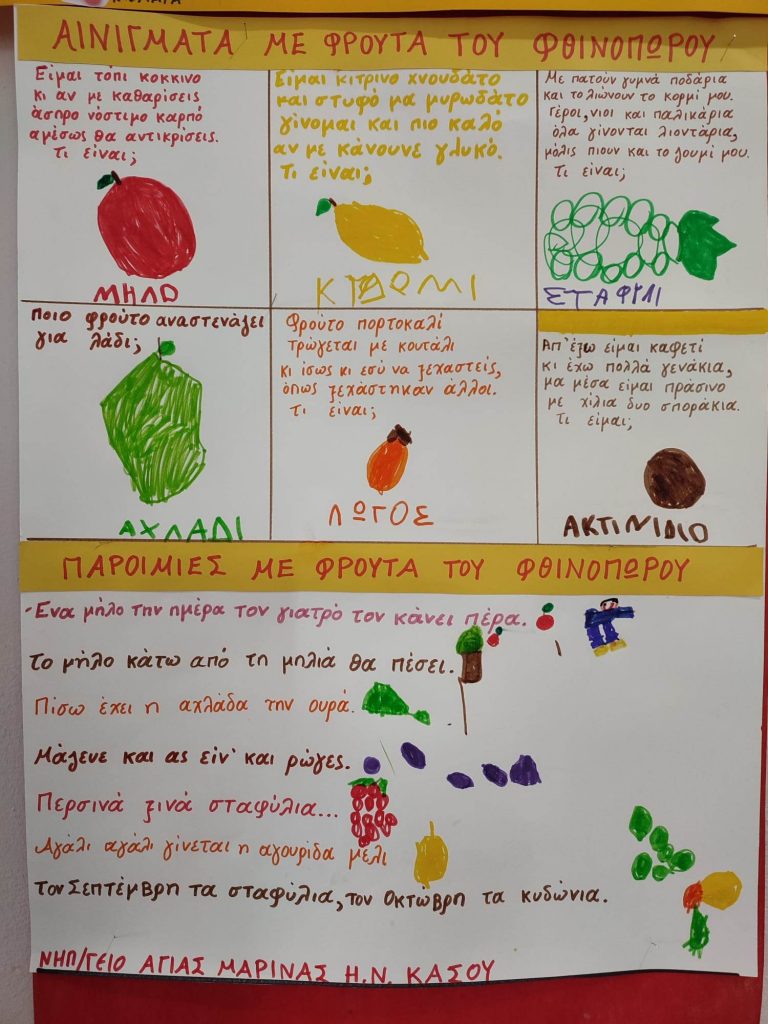 ΑΙΝΙΓΜΑΤΑ ΜΕ ΦΡΟΥΤΑ ΤΟΥ ΦΘΙΝΟΠΩΡΟΥ
Είμαι τόπι κόκκινο
κι αν με καθαρίσεις
άσπρο νόστιμο καρπό
αμέσως θα αντικρίσεις.
Τι είναι;
ΜΗΛΟ
Είμαι κίτρινο χνουδάτο
και στυφό μα μυρωδάτο
γίνομαι και πιο καλό
αν με κάνουνε γλυκό.
Τι είναι;
ΚΥΔΩΜΙ
Με πατούν γυμνά ποδάρια
και το λιώνουν το κορμί μου.
Γέροι, νιοι και παλικάρια
όλα γίνονται λιοντάρια,
μόλις πιουν και το ζουμί μου.
Τι είναι;
ΣΤΑΦΥΛΙ
Ποιο φρούτο αναστενάζει
για λάδι;
ΑΧΛΑΔΙ
Φρούτο πορτοκαλί
τρώγεται με κουτάλι
κι ίσως κι εσύ να ξεχαστείς,
όπως ξεχάστηκαν άλλοι.
τι είναι;
ΛΩΤΟΣ
Απ'έξω είμαι καφετί
κι έχω πολλά γενάκια,
μα μέσα είμαι πράσινο
με χίλια δυο σποράκια.
Τι είμαι;
ΑΚΤΙΝΙΔΙΟ
ΠΑΡΟΙΜΙΕΣ ΜΕ ΦΡΟΥΤΑ ΤΟΥ ΦΘΙΝΟΠΩΡΟΥ
-Ένα μήλο την ημέρα τον γιατρό τον κάνει πέρα.
Το μήλο κάτω από τη μηλιά θα πέσει.
Πίσω έχει η αχλάδα την ουρά.
Μάζευε και ας είν' και ρώγες.
Περσινά ξινά σταφύλια...
Αγάλι αγάλι γίνεται η αγουρίδα μέλι
τον Σεπτέμβρη τα σταφύλια, τον Οκτώβρη τα κυδώνια.
ΝΗΠ/ΓΕΙΟ ΑΓΙΑΣ ΜΑΡΙΝΑΣ Η.Ν. ΚΑΣΟΥ